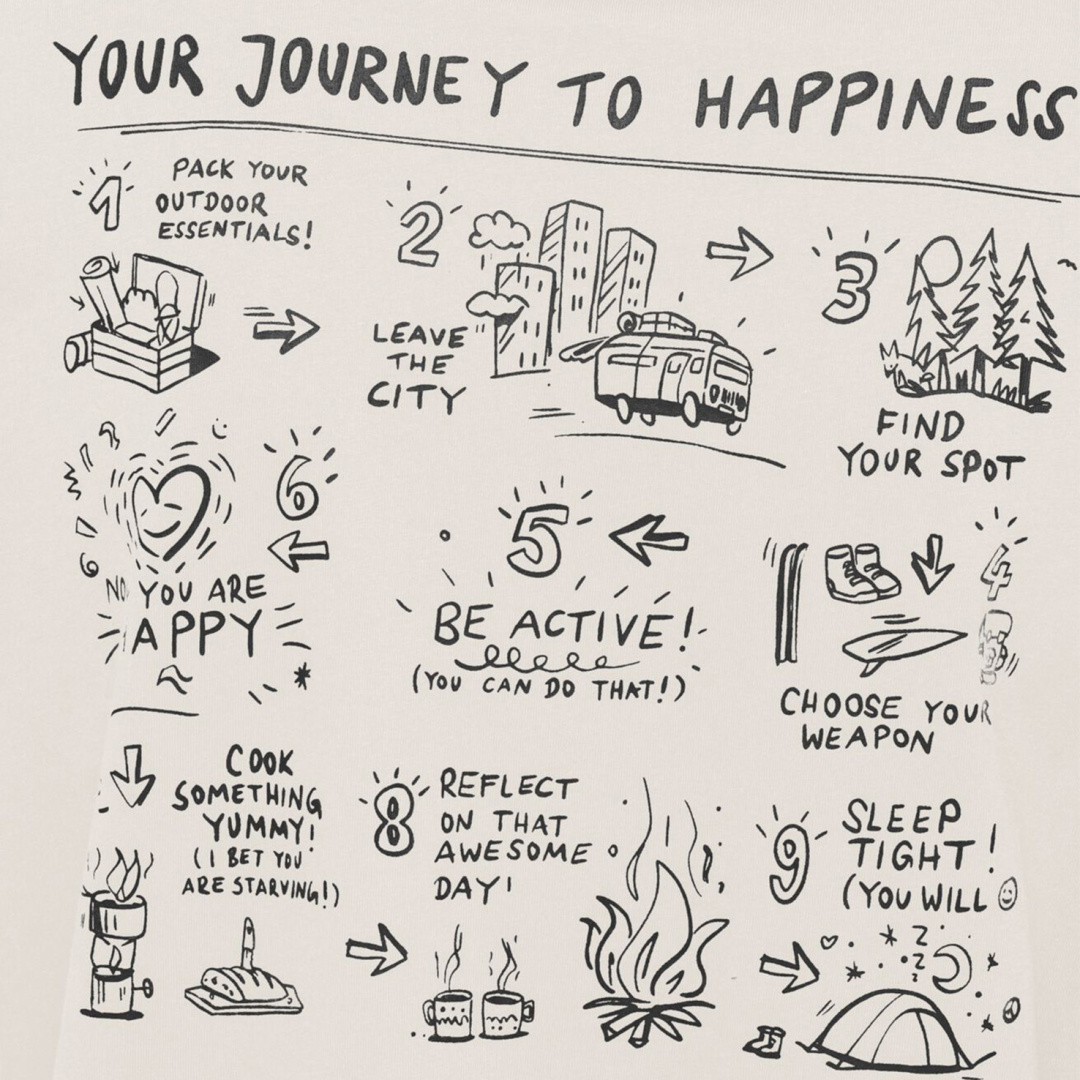 YOUR JOURNEY TO HAPPINESS
1
PACK YOUR
OUTDOOR
ESSENTIALS!
2
LEAVE
THE
CITY
3
FIND
YOUR SPOT
4
CHOOSE YOUR
WEAPON
5
BE ACTIVE!
(YOU CAN DO THAT!)
6
NO YOU ARE
APPY
COOK
SOMETHING
YUMMY!
(I BET YOU
ARE STARVING!)
8
REFLECT
ON THAT
AWESOME
DAY!
9
SLEEP
TIGHT!
(YOU WILL
Z
Z
z